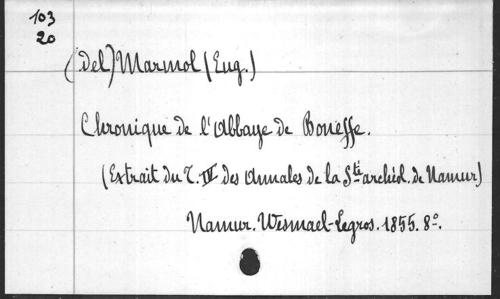 103
20
(Del) Marmol (Eug.)
Chronique de l'Abbaye de Boneffe.
(Extrait du T. IV des Annales de la Sté archéol. de Namur)
Namur. Wesmael-Legros. 1855. 8°.